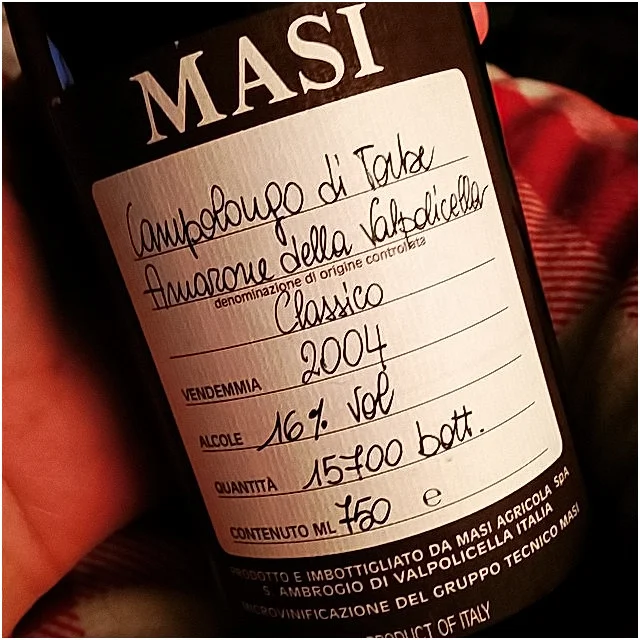 MASI
Campolongo di Torbe
Amarone della Valpolicella
denominazione di origine controllata
Classico
VENDEMMIA 2004
ALCOLE 16% vol
QUANTITÀ 15700 bott.
CONTENUTO ML 750 e
PRODOTTO E IMBOTTIGLIATO DA MASI AGRICOLA SpA
S. AMBROGIO DI VALPOLICELLA ITALIA
MICROVINIFICAZIONE DEL GRUPPO TECNICO MASI
PRODUCT OF ITALY